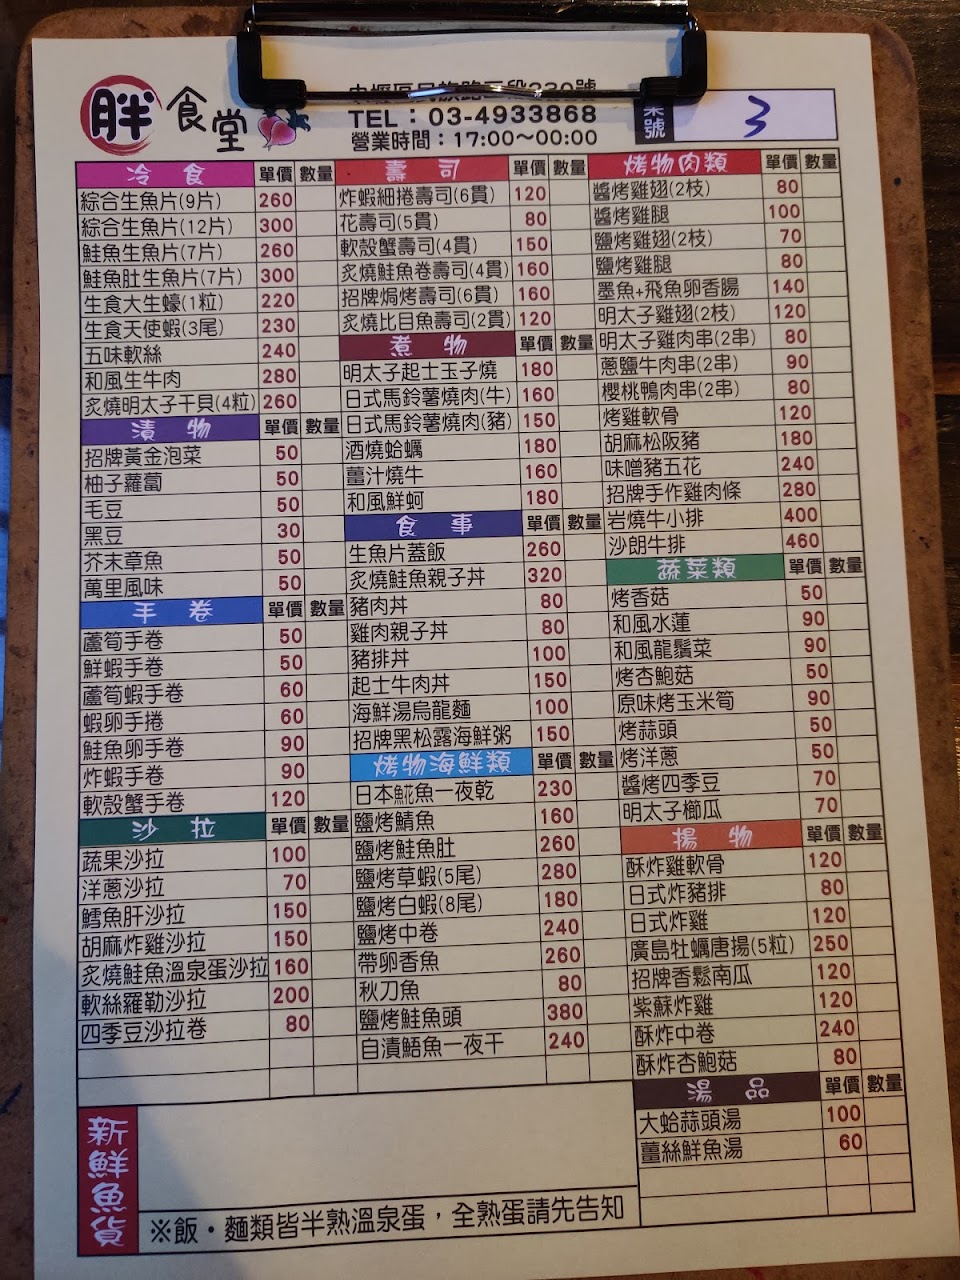 胖食堂
TEL：03-4933868
營業時間：17:00～00:00
桌號 3
冷食 單價 數量
綜合生魚片(9片) 260
綜合生魚片(12片) 300
鮭魚生魚片(7片) 260
鮭魚肚生魚片(7片) 300
生食大生蠔(1粒) 220
生食天使蝦(3尾) 230
五味軟絲 240
和風生牛肉 280
炙燒明太子干貝(4粒) 260
漬物 單價 數量
招牌黃金泡菜 50
柚子蘿蔔 50
毛豆 50
黑豆 30
芥末章魚 50
萬里風味 50
手卷 單價 數量
蘆筍手卷 50
鮮蝦手卷 50
蘆筍蝦手卷 60
蝦卵手捲 60
鮭魚卵手卷 90
炸蝦手卷 90
軟殼蟹手卷 120
沙拉 單價 數量
蔬果沙拉 100
洋蔥沙拉 70
鱈魚肝沙拉 150
胡麻炸雞沙拉 150
炙燒鮭魚溫泉蛋沙拉 160
軟絲羅勒沙拉 200
四季豆沙拉卷 80
壽司 單價 數量
炸蝦細捲壽司(6貫) 120
花壽司(5貫) 80
軟殼蟹壽司(4貫) 150
炙燒鮭魚卷壽司(4貫) 160
招牌焗烤壽司(6貫) 160
炙燒比目魚壽司(2貫) 120
煮物 單價 數量
明太子起士玉子燒 180
日式馬鈴薯燒肉(牛) 160
日式馬鈴薯燒肉(豬) 150
酒燒蛤蠣 180
薑汁燒牛 160
和風鮮蚵 180
食事 單價 數量
生魚片蓋飯 260
炙燒鮭魚親子丼 320
豬肉丼 80
雞肉親子丼 80
豬排丼 100
起士牛肉丼 150
海鮮湯烏龍麵 100
招牌黑松露海鮮粥 150
烤物海鮮類 單價 數量
日本䱛魚一夜乾 230
鹽烤鯖魚 160
鹽烤鮭魚肚 260
鹽烤草蝦(5尾) 280
鹽烤白蝦(8尾) 180
鹽烤中卷 240
帶卵香魚 260
秋刀魚 80
鹽烤鮭魚頭 380
自漬鯃魚一夜干 240
烤物肉類 單價 數量
醬烤雞翅(2枝) 80
醬烤雞腿 100
鹽烤雞翅(2枝) 70
鹽烤雞腿 80
墨魚+飛魚卵香腸 140
明太子雞翅(2枝) 120
明太子雞肉串(2串) 80
蔥鹽牛肉串(2串) 90
櫻桃鴨肉串(2串) 80
烤雞軟骨 120
胡麻松阪豬 180
味噌豬五花 240
招牌手作雞肉條 280
岩燒牛小排 400
沙朗牛排 460
蔬菜類 單價 數量
烤香菇 50
和風水蓮 90
和風龍鬚菜 90
烤杏鮑菇 50
原味烤玉米筍 90
烤蒜頭 50
烤洋蔥 50
醬烤四季豆 70
明太子櫛瓜 70
揚物 單價 數量
酥炸雞軟骨 120
日式炸豬排 80
日式炸雞 120
廣島牡蠣唐揚(5粒) 250
招牌香鬆南瓜 120
紫蘇炸雞 120
酥炸中卷 240
酥炸杏鮑菇 80
湯品 單價 數量
大蛤蒜頭湯 100
薑絲鮮魚湯 60
新鮮魚貨
※飯・麵類皆半熟溫泉蛋，全熟蛋請先告知